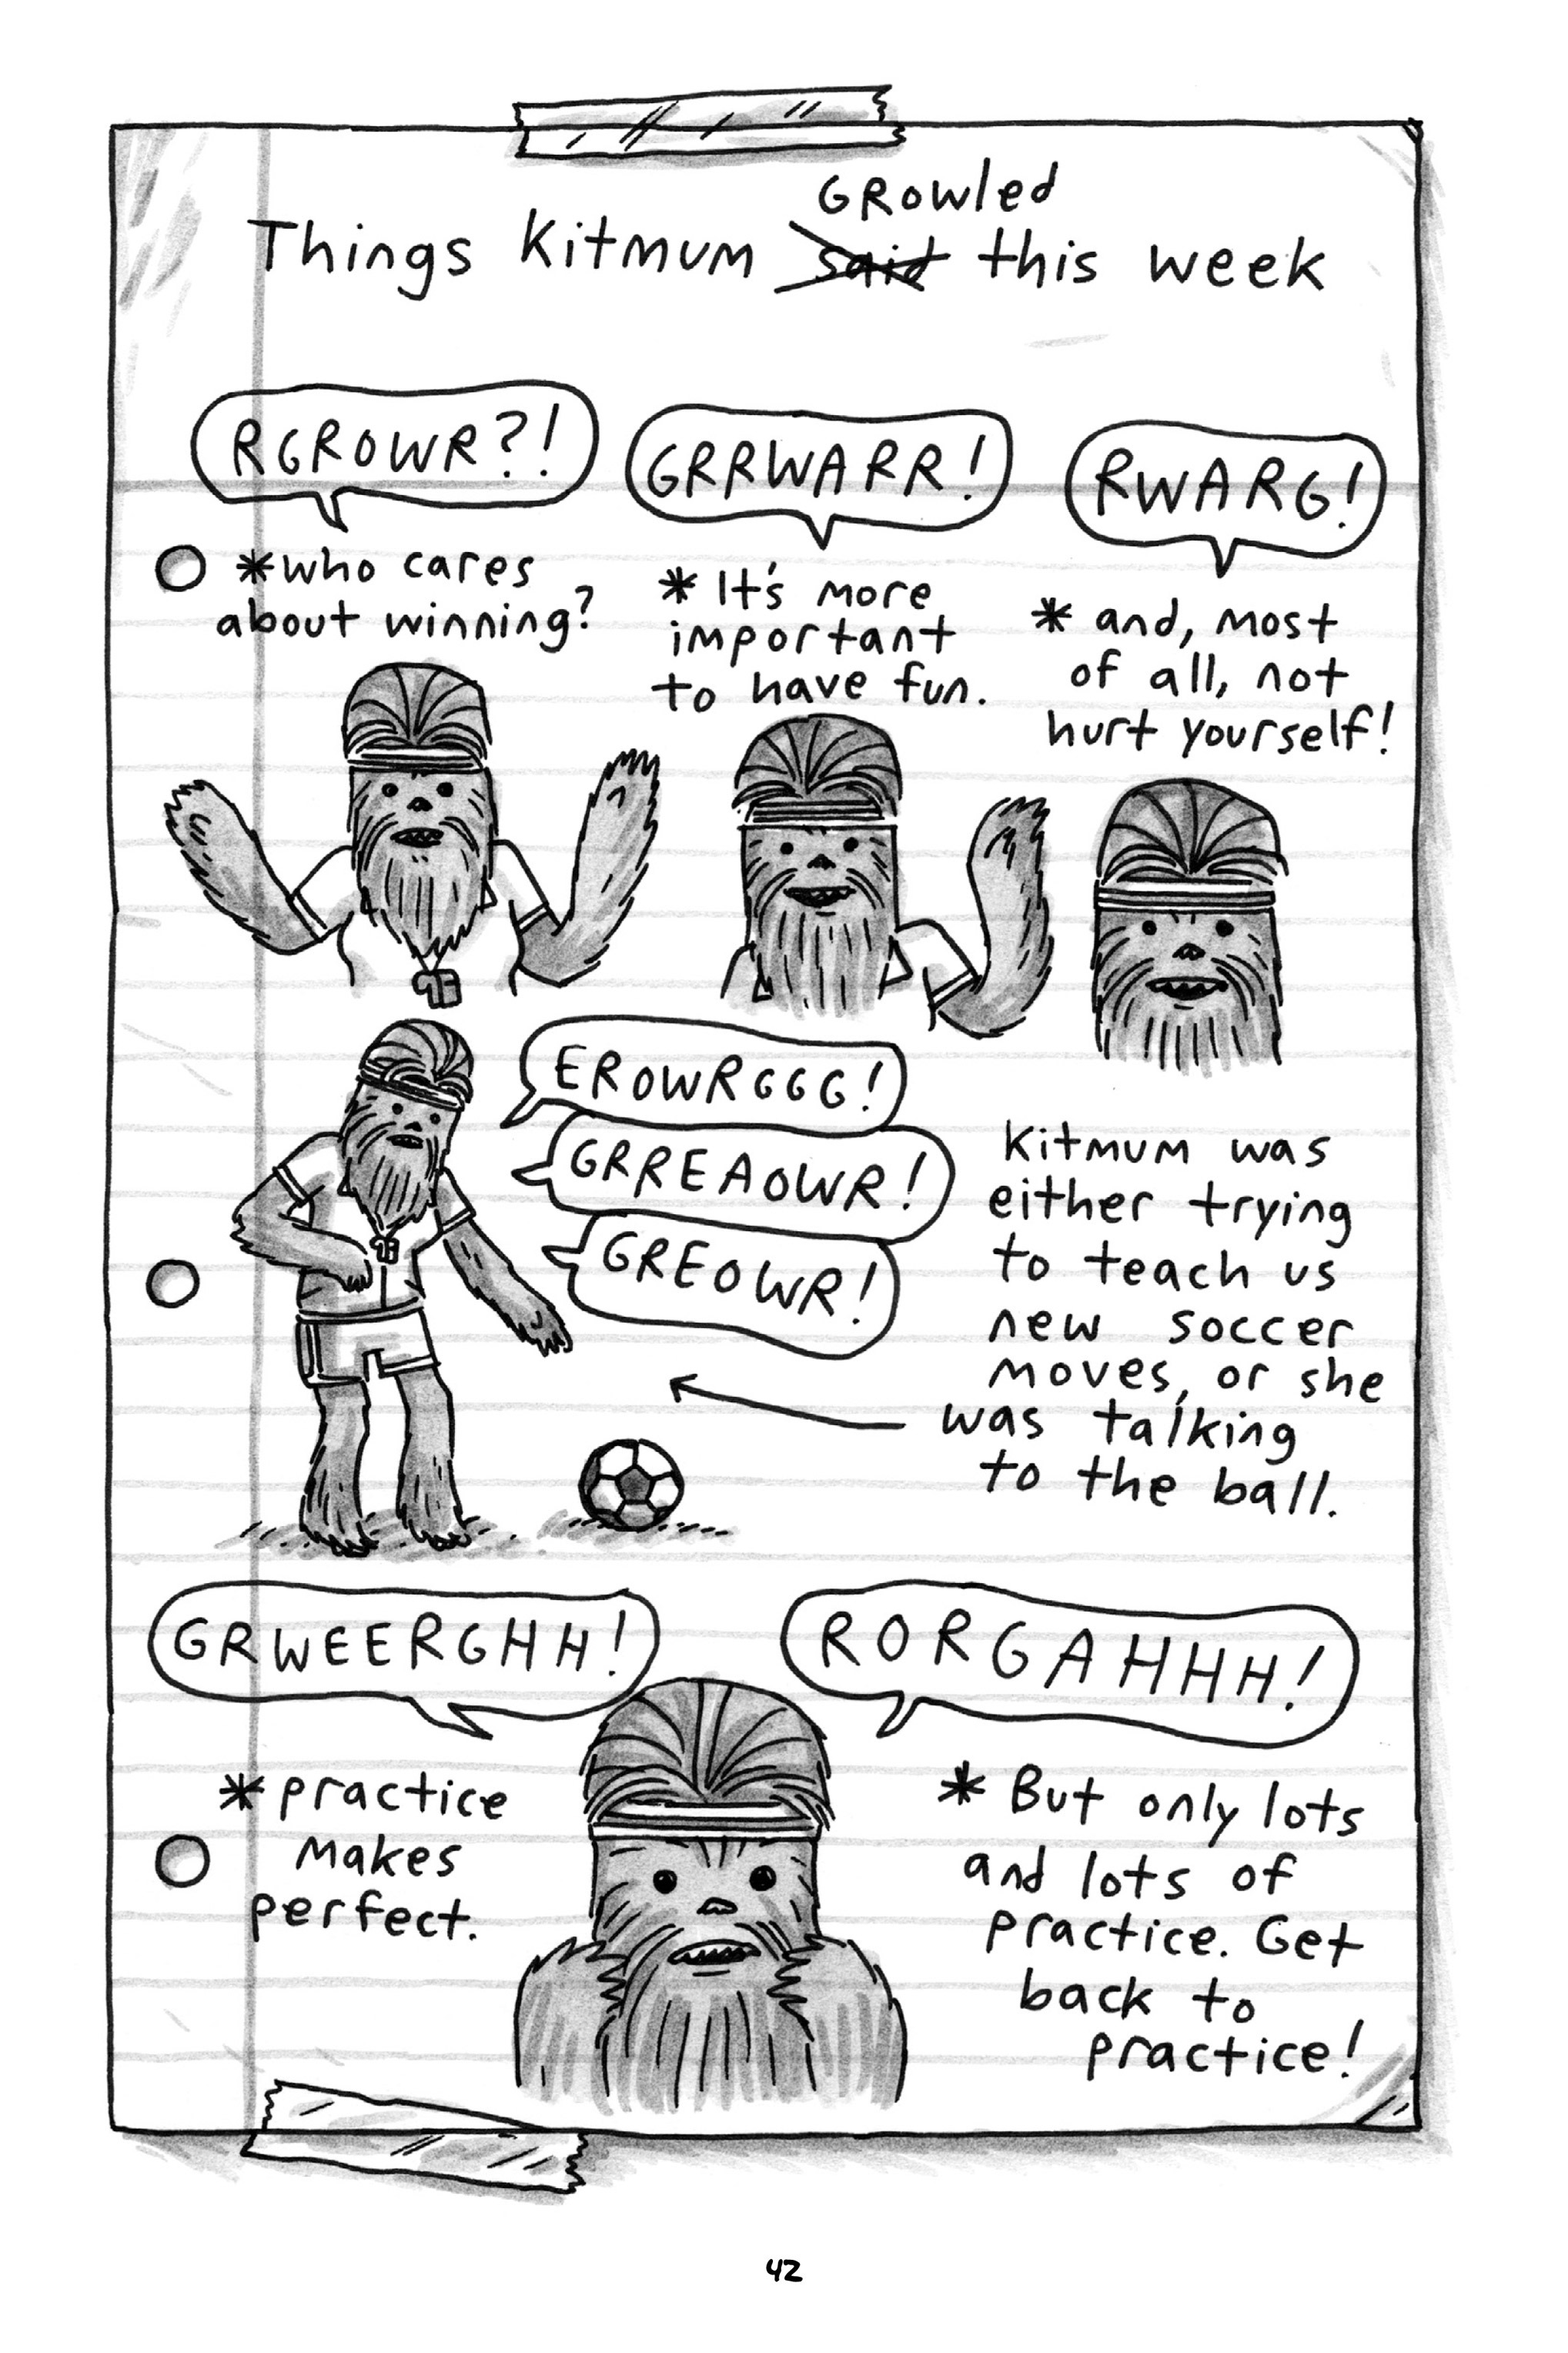 GROWled
Things Kitmum said this week
RGROWR?!
GRRWARR!
RWARG!
*who cares
about winning?
* It's more
important
to have fun.
* and, most
of all, not
hurt yourself!
EROWRGGG!
GRREAOWR!
GREOWR!
Kitmum was
either trying
to teach us
new soccer
moves, or she
was talking
to the ball.
GRWEERGHH!
RORGAHHH!
* practice
makes
perfect.
* But only lots
and lots of
practice. Get
back to
practice!
42